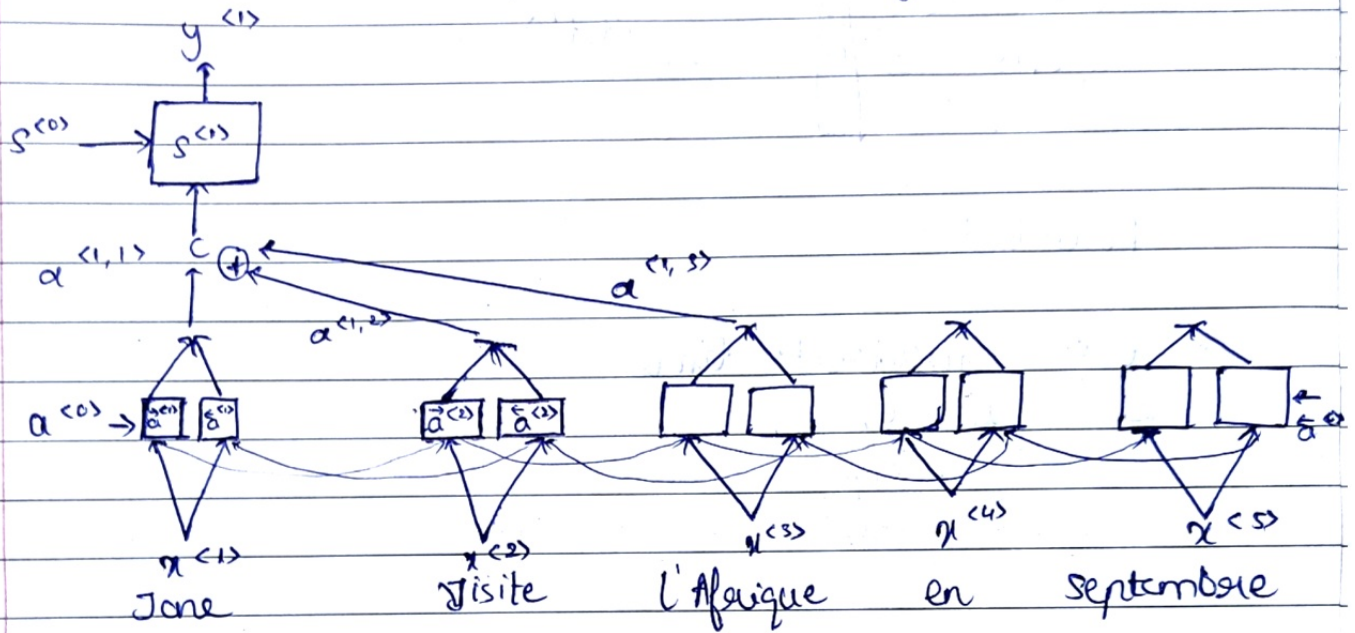 y<1>
S<0> S<1>
α<1,1> C +
α<1,2> α<1,3>
a<0> a⃗<1> a⃖<1> a⃗<2> a⃖<2> a⃖
x<1> x<2> x<3> x<4> x<5>
Jane Visite l'Afrique en Septembre